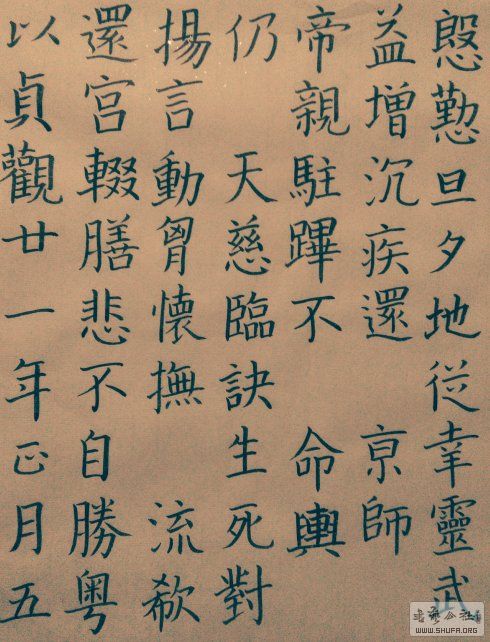 慇懃旦夕地從幸靈武
益增沉疾還 亰師
帝親駐蹕不 命輿
仍 天慈臨訣生死對
揚言動胷懷撫 流欷
還宮輟膳悲不自勝粵
以貞觀廿一年正月五
WWW.SHUFA.ORG